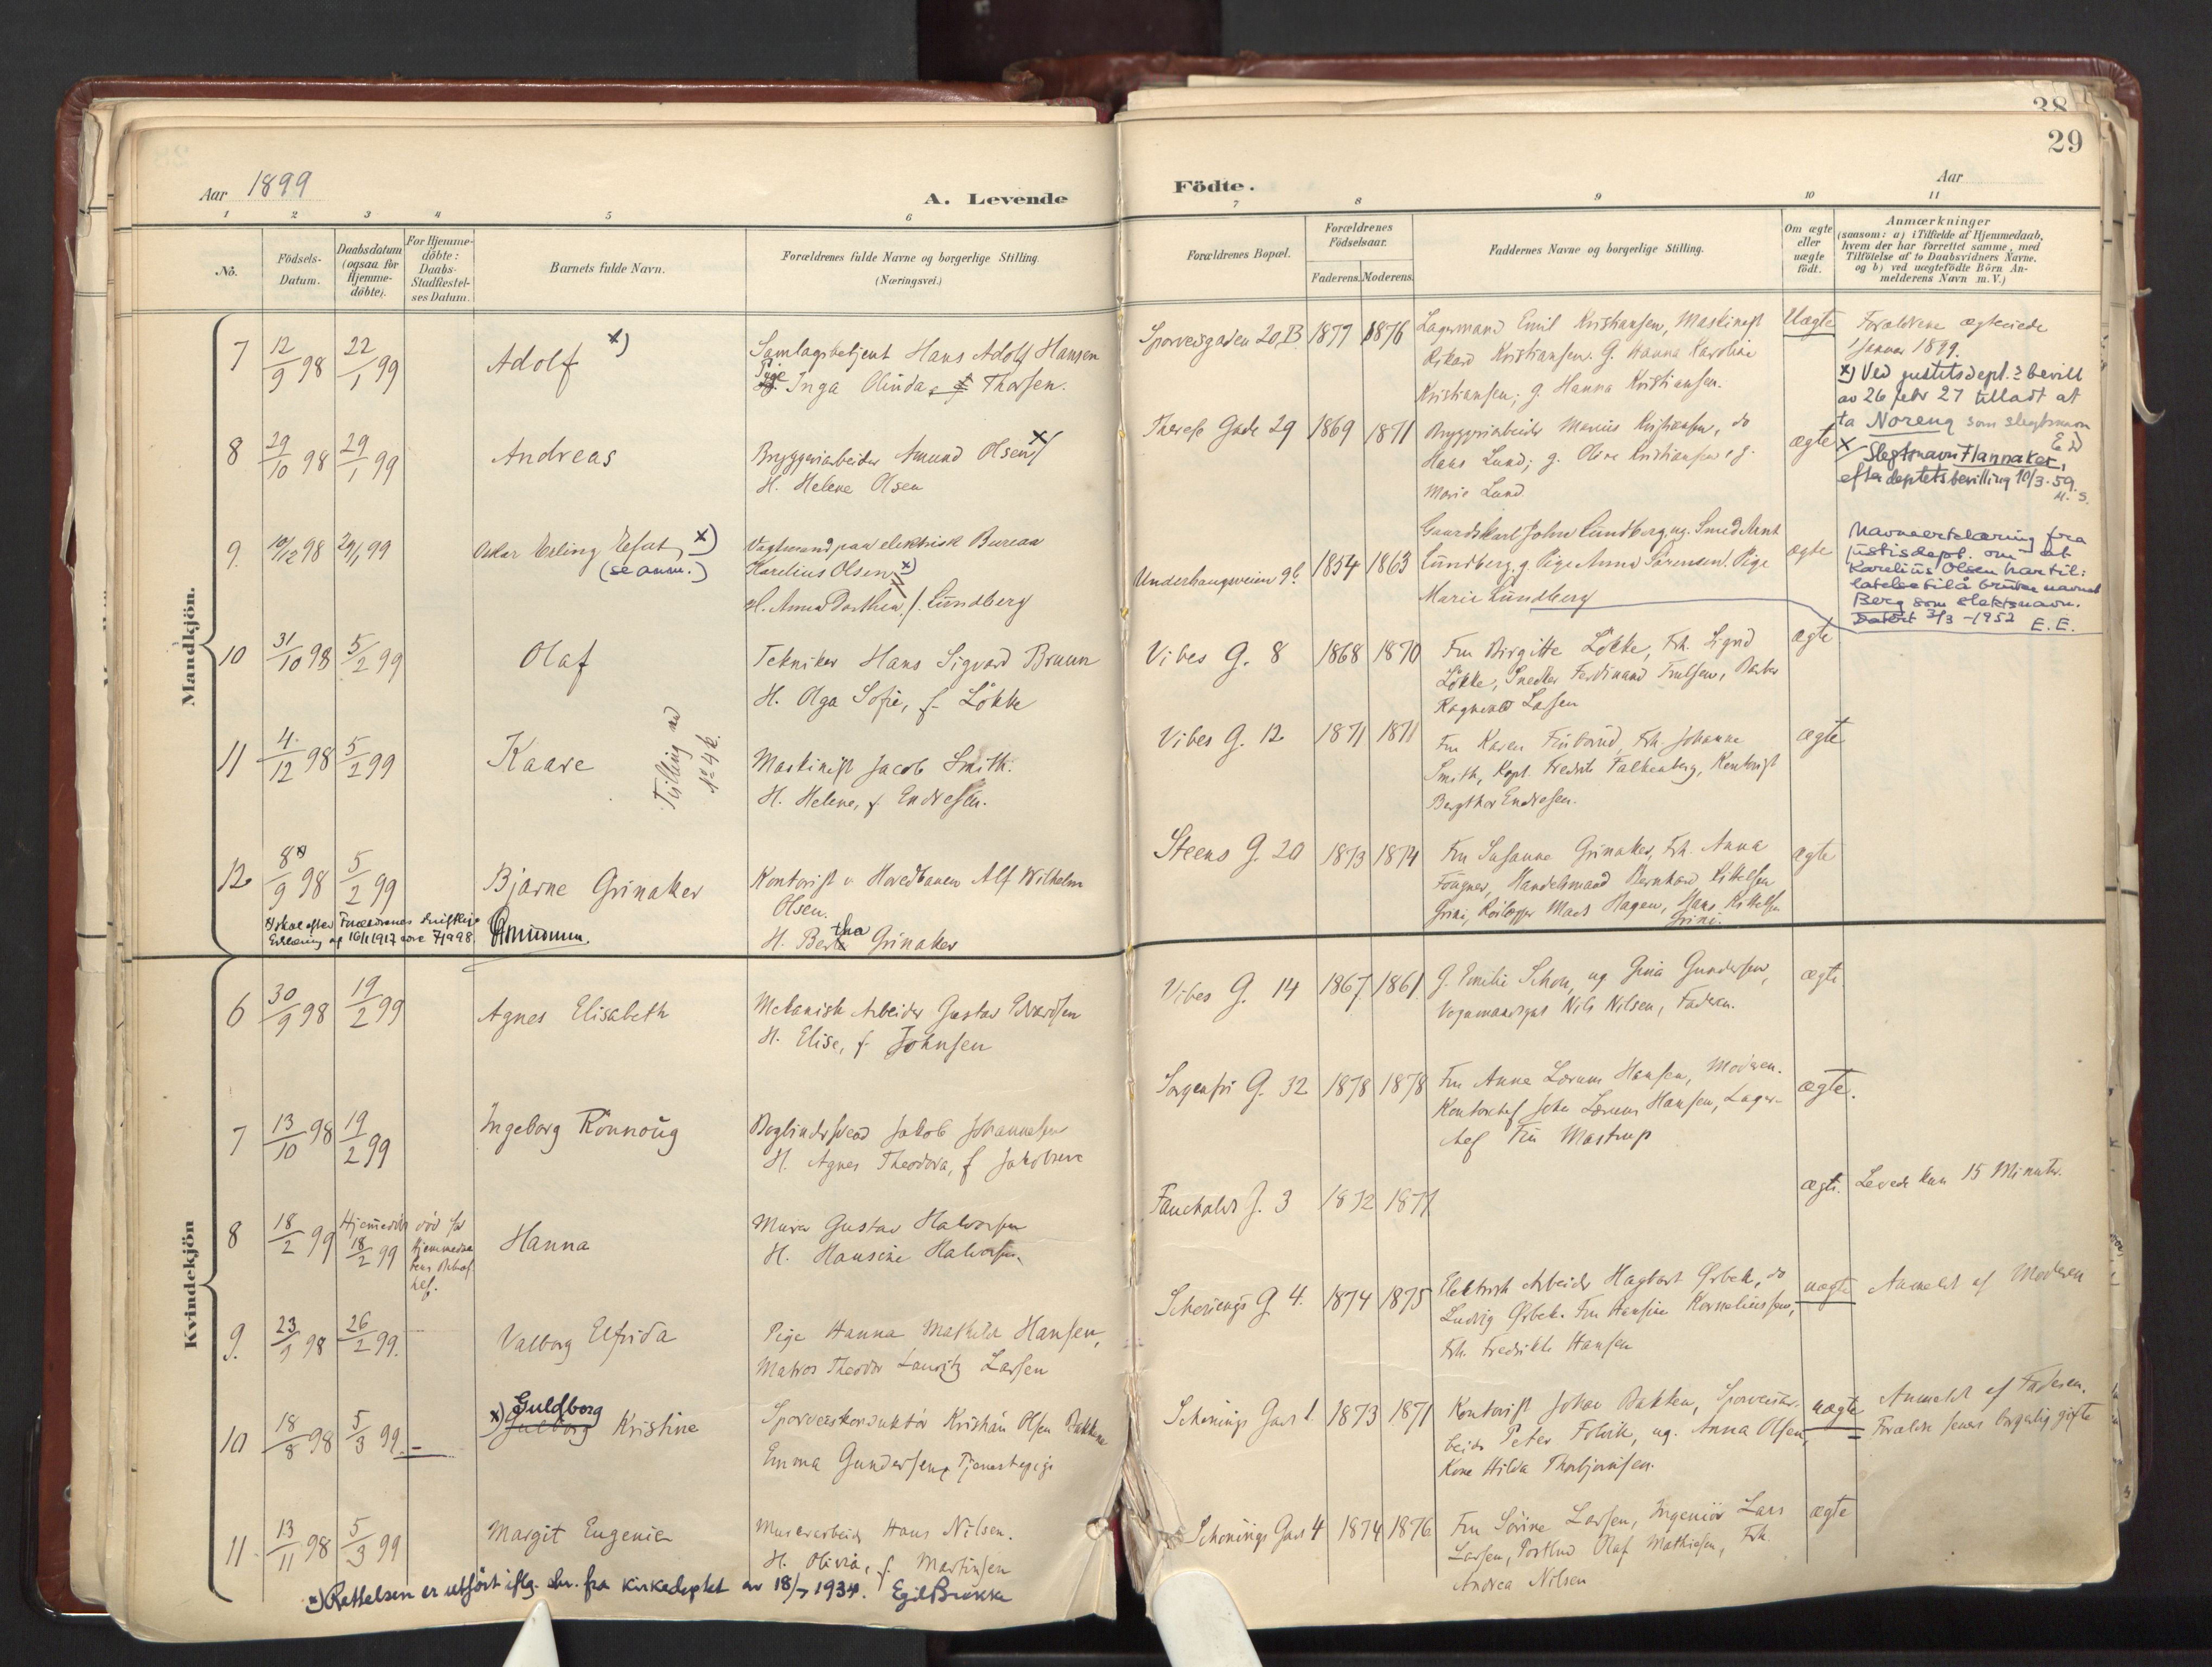 38
29
Aar 1899
A. Levende
Födte.
Aar
1 2 3 4 5 6 7 8 9 10 11
No.
Födsels-
Datum.
Daabsdatum
(ogsaa for
Hjemme-
döbte).
For Hjemme-
döbte:
Daabs-
Stadfæstel-
ses Datum.
Barnets fulde Navn.
Forældrenes fulde Navne og borgerlige Stilling.
(Næringsvei.)
Forældrenes Bopæl.
Forældrenes
Födselsaar.
Faderens. Moderens.
Faddernes Navne og borgerlige Stilling.
Om ægte
eller
uægte
födt.
Anmærkninger
(saasom: a) i Tilfælde af Hjemmedaab,
hvem der har forrettet samme, med
Tilföielse af to Daabsvidners Navne.
og b) ved uægtefödte Börn An-
melderens Navn m.V.)
Mandkjön.
7 12/9 98 22/1 99 Adolf x)
Samlagsbetjent Hans Adolf Hansen
Pige Inga Olinda Thorsen.
Sporveisgaden 20,B 1877 1876
Lagermand Emil Kristiansen, Maskinist
Rikard Kristiansen. G. Hanna Karoline
Kristiansen; g. Hanna Kristiansen.
Uægte
Forældrene ægteviede
Januar 1899.
x) Ved justitsdept.s bevill
av 26 febr 27 tilladt at
ta Noreng som slegtsnavn
8 29/10 98 29/1 99 Andreas
Bryggeriarbeider Amund Olsen x/
H. Helene Olsen
Therese Gade 29 1869 1871
Bryggeriarbeider Marius Kristiansen, do
Hans Lund; g. Oline Kristiansen, g.
Marie Lund
ægte
x/ Slegtsnavn Flannaker,
efter deptets bevilling 10/3-59.
H. S.
9. 10/12 98 29/1 99 Oskar Erling x)
(se anm.)
Vagtmand paa elektrisk Bureau
Karelius Olsen x)
H. Anna Dorthea, f. Lundberg
Underhaugsveien 9b 1854 1863
Gaardskarl John Lundberg, ug. Smed Arnt
Lundberg, g. Pige Anna Sörensen. Pige
Marie Lundberg
ægte
Navneerklæring fra
justisdept. om at
Karelius Olsen har til:
latelse til å bruke navnet
Berg som slektsnavn.
Datert 3/3-1952 E. E.
10 31/10 98 5/2 99 Olaf
Tekniker Hans Sigvard Bruun
H. Olga Sofie, f. Lökke
Vibes G. 8 1868 1870
Fru Birgitte Lökke, Frk. Sigrid
Lökke, Snedker Ferdinand Trulsen, Barber
Ragnvald Larsen
ægte
11 4/12 98 5/2 99 Kaare
Tvilling av
No 4 k.
Maskinist Jacob Smith.
H. Helene, f. Endresen.
Vibes G. 12 1871 1871
Fru Karen Finborud, Frk. Johanne
Smith, Kapt. Fredrik Falkenberg, Kontorist
Bergthor Endresen.
ægte
12 8x/9 98 5/2 99 Bjarne Grinaker
Kontorist v. Hovedbanen Alf Wilhelm
Olsen.
H. Bertha Grinaker
x) skal efter Forældrenes skriftlige
Erklæring af 16/1 1917 være 7/9 98.
Steens G. 20 1873 1874
Fru Susanne Grinaker, Frk. Anna
Fougner, Handelsmand Bernhard Kittelsen
Grini, Mads Hagen, Hans Kittelsen
Grini.
ægte
Kvindekjön
6 30/9 98 19/2 99 Agnes Elisabeth
Mekanisk Arbeider Gustav Edvardsen
H. Elise, f. Johnsen
Vibes G. 14 1867 1861
G. Emilie Schou, ug Gina Gundersen,
Vognmandsgut Nils Nilsen, Faderen.
ægte
7 13/10 98 19/2 99 Ingeborg Rönnoug
Bogbindersvend Jakob Johannesen
H. Agnes Theodora, f Jakobsen
Sorgenfri G. 32 1878 1878
Fru Anna Lorum Hansen, Moderen.
Kontorchef John Lorum Hansen, Lager-
chef Finn Mastrup
ægte.
8 18/2 99 Hjemmedöbt 18/2 99 Hanna
Murer Gustav Halvorsen
H. Hansine Halvorsen
Fauchalds G. 3 1872 1877
ægte.
Levede kun 15 Minuter.
9. 23/9 98 26/2 99. Valborg Elfrida
Pige Hanna Mathilde Hansen,
Matros Theodor Lauritz Larsen
Schönings G 4. 1874 1875
Elektrisk Arbeider Hagbart Orbek, do
Ludvig Orbek. Fru Hansine Korneliussen,
Frk. Fredrikke Hansen
uægte
Anmeldt af Moderen
10 18/8 98 5/3 99. x) Guldborg
Julborg Kristine
Sporveiskonduktör Kristian Olsen Bakken
Emma Gundersen, Tjenestepige
Schönings Gade 1. 1873 1871
Kontorist Johan Bakken, Sporveisar-
beider Peter Folvik, ug. Anna Olsen,
Kone Hilda Thorbjørnsen.
uægte
Anmeldt af Faderen.
Forældre senere borgerlig gifte
11. 13/11 98 5/3 99 Margit Eugenie
Murerarbeider Hans Nilsen.
H. Olivia, f. Martinsen
Schönings Gade 4 1874 1876
Fru Sörine Larsen, Ingeniör Lars
Larsen, Postbud Olaf Mathiesen, Frk.
Andrea Nilsen
ægte
x) Rettelsen er utfört iflg. skr. fra kirkedeptet av 18/7 1934. Egil Brekke